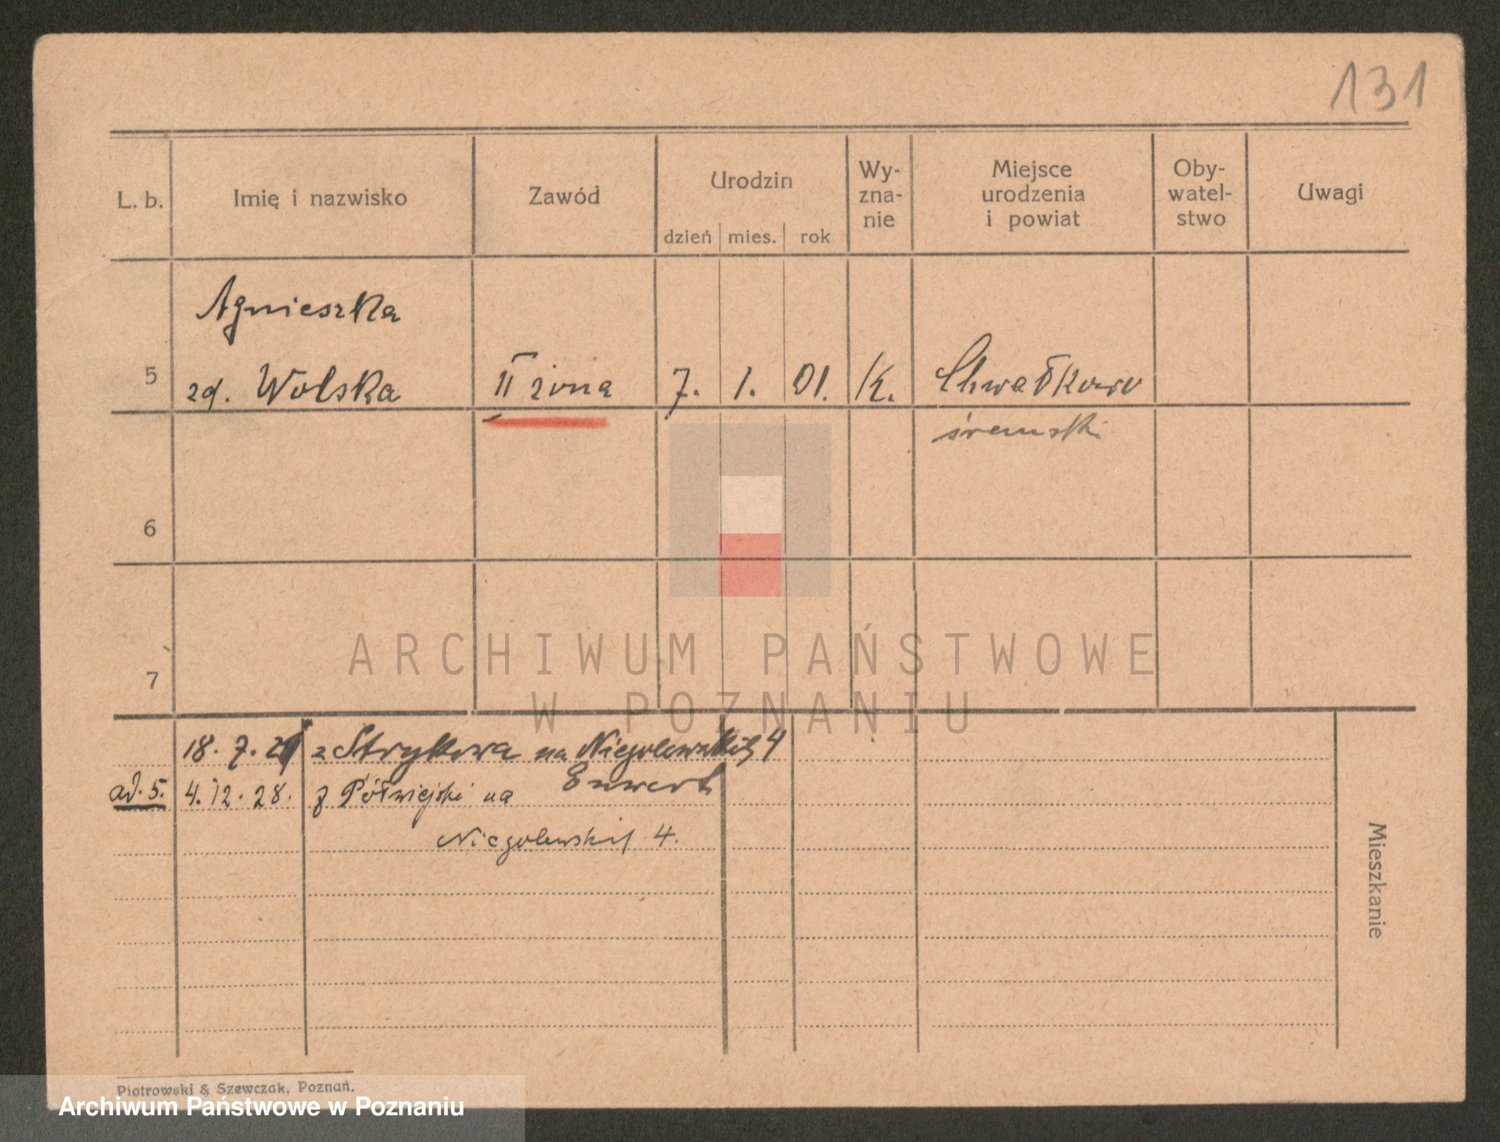 131
L. b.
Imię i nazwisko
Zawód
Urodzin
dzień mies. rok
Wy-
zna-
nie
Miejsce
urodzenia
i powiat
Oby-
watel-
stwo
Uwagi
Agnieszka
5 zd. Wolska II żona 7. 1. 01. K. Chwałkowo
śremski
6
7
ARCHIWUM PAŃSTWOWE
W POZNANIU
18. 7. z Strykowa na Niegolewskich 4
ad. 5. 4. 12. 28. z Półwiejski na
Niegolewskich 4.
Mieszkanie
Piotrowski & Szewczak, Poznań.
Archiwum Państwowe w Poznaniu